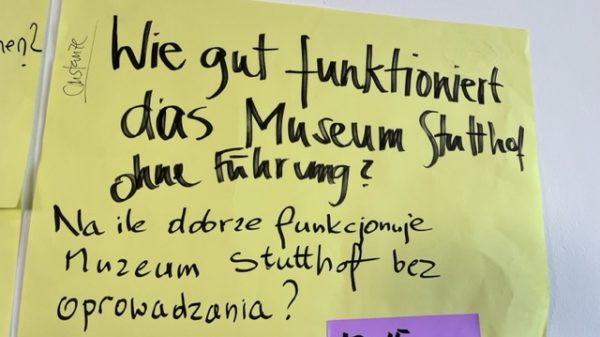 Wie gut funktioniert
das Museum Stutthof
ohne Führung?
Na ile dobrze funkcjonuje
Muzeum Stutthof bez
oprowadzania?